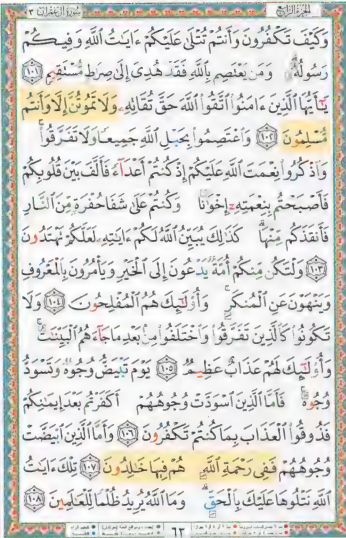 الجزء الرابع
سورة آل عمران ٣
وَكَيْفَ تَكْفُرُونَ وَأَنتُمْ تُتْلَىٰ عَلَيْكُمْ ءَايَٰتُ ٱللَّهِ وَفِيكُمْ
رَسُولُهُۥ وَمَن يَعْتَصِم بِٱللَّهِ فَقَدْ هُدِىَ إِلَىٰ صِرَٰطٍ مُّسْتَقِيمٍ ١٠١
يَٰٓأَيُّهَا ٱلَّذِينَ ءَامَنُوا۟ ٱتَّقُوا۟ ٱللَّهَ حَقَّ تُقَاتِهِۦ وَلَا تَمُوتُنَّ إِلَّا وَأَنتُم
مُّسْلِمُونَ ١٠٢ وَٱعْتَصِمُوا۟ بِحَبْلِ ٱللَّهِ جَمِيعًا وَلَا تَفَرَّقُوا۟
وَٱذْكُرُوا۟ نِعْمَتَ ٱللَّهِ عَلَيْكُمْ إِذْ كُنتُمْ أَعْدَآءً فَأَلَّفَ بَيْنَ قُلُوبِكُمْ
فَأَصْبَحْتُم بِنِعْمَتِهِۦٓ إِخْوَٰنًا وَكُنتُمْ عَلَىٰ شَفَا حُفْرَةٍ مِّنَ ٱلنَّارِ
فَأَنقَذَكُم مِّنْهَا كَذَٰلِكَ يُبَيِّنُ ٱللَّهُ لَكُمْ ءَايَٰتِهِۦ لَعَلَّكُمْ تَهْتَدُونَ
١٠٣ وَلْتَكُن مِّنكُمْ أُمَّةٌ يَدْعُونَ إِلَى ٱلْخَيْرِ وَيَأْمُرُونَ بِٱلْمَعْرُوفِ
وَيَنْهَوْنَ عَنِ ٱلْمُنكَرِ وَأُو۟لَٰٓئِكَ هُمُ ٱلْمُفْلِحُونَ ١٠٤ وَلَا
تَكُونُوا۟ كَٱلَّذِينَ تَفَرَّقُوا۟ وَٱخْتَلَفُوا۟ مِنۢ بَعْدِ مَا جَآءَهُمُ ٱلْبَيِّنَٰتُ
وَأُو۟لَٰٓئِكَ لَهُمْ عَذَابٌ عَظِيمٌ ١٠٥ يَوْمَ تَبْيَضُّ وُجُوهٌ وَتَسْوَدُّ
وُجُوهٌ فَأَمَّا ٱلَّذِينَ ٱسْوَدَّتْ وُجُوهُهُمْ أَكَفَرْتُم بَعْدَ إِيمَٰنِكُمْ
فَذُوقُوا۟ ٱلْعَذَابَ بِمَا كُنتُمْ تَكْفُرُونَ ١٠٦ وَأَمَّا ٱلَّذِينَ ٱبْيَضَّتْ
وُجُوهُهُمْ فَفِى رَحْمَةِ ٱللَّهِ هُمْ فِيهَا خَٰلِدُونَ ١٠٧ تِلْكَ ءَايَٰتُ
ٱللَّهِ نَتْلُوهَا عَلَيْكَ بِٱلْحَقِّ وَمَا ٱللَّهُ يُرِيدُ ظُلْمًا لِّلْعَٰلَمِينَ ١٠٨
٦٣